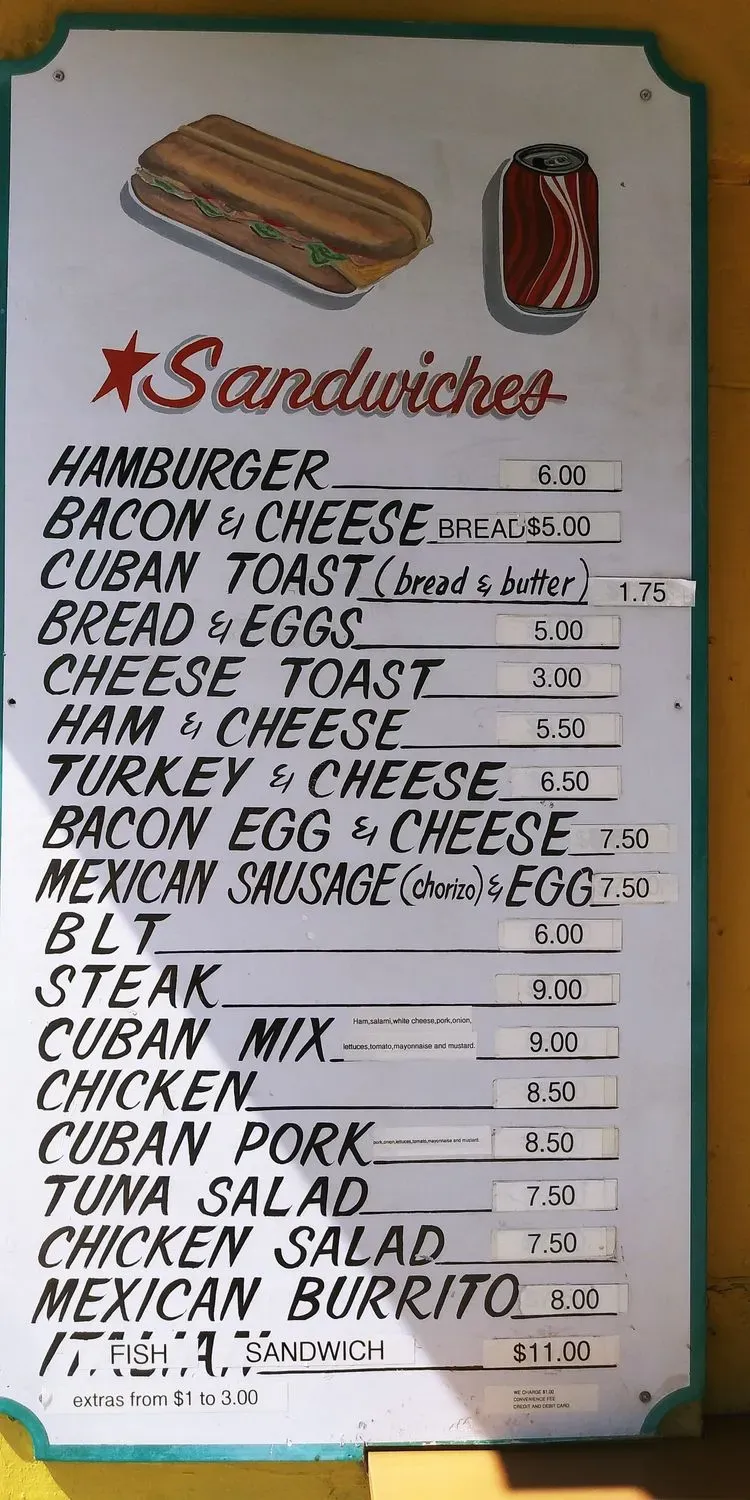 Sandwiches
HAMBURGER 6.00
BACON & CHEESE BREAD $5.00
CUBAN TOAST (bread & butter) 1.75
BREAD & EGGS 5.00
CHEESE TOAST 3.00
HAM & CHEESE 5.50
TURKEY & CHEESE 6.50
BACON EGG & CHEESE 7.50
MEXICAN SAUSAGE (chorizo) & EGG 7.50
BLT 6.00
STEAK 9.00
Ham,salami,white cheese,pork,onion,
CUBAN MIX lettuces,tomato,mayonnaise and mustard. 9.00
CHICKEN 8.50
CUBAN PORK pork,onion,lettuces,tomato,mayonnaise and mustard. 8.50
TUNA SALAD 7.50
CHICKEN SALAD 7.50
MEXICAN BURRITO 8.00
ITALIAN FISH SANDWICH $11.00
extras from $1 to 3.00
WE CHARGE $1.00
CONVENIENCE FEE
CREDIT AND DEBIT CARD